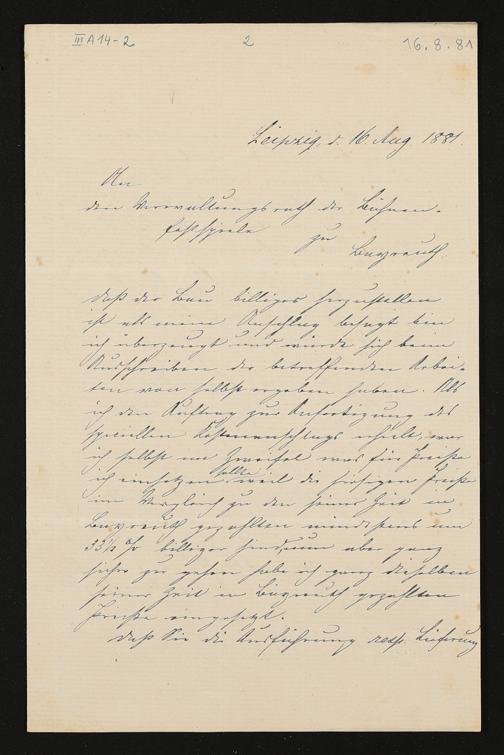 III A 14-2 2 16.8.81
Leipzig, d. 16. Aug 1881.
An
den Verwaltungsrath der Bühnen-
festspiele zu
Bayreuth.
Daß der Bau billiger herzustellen
ist als meine Anschlag besagt bin
ich überzeugt und würde sich beim
Ausschreiben der betreffenden Arbei-
ten von selbst ergeben haben. Als
ich den Auftrag zur Anfertigung des
speciellen Kostenanschlags erhielt, war
ich selbst im Zweifel was für Preise
ich einsetzen sollte weil die hiesigen Preise
im Vergleich zu den seiner Zeit in
Bayreuth gezahlten mindestens um
33⅓ % billiger sind, um aber ganz
sicher zu gehen habe ich ganz dieselben
seiner Zeit in Bayreuth gezahlten
Preise eingesetzt.
Daß Sie die Ausführung resp. Lieferung